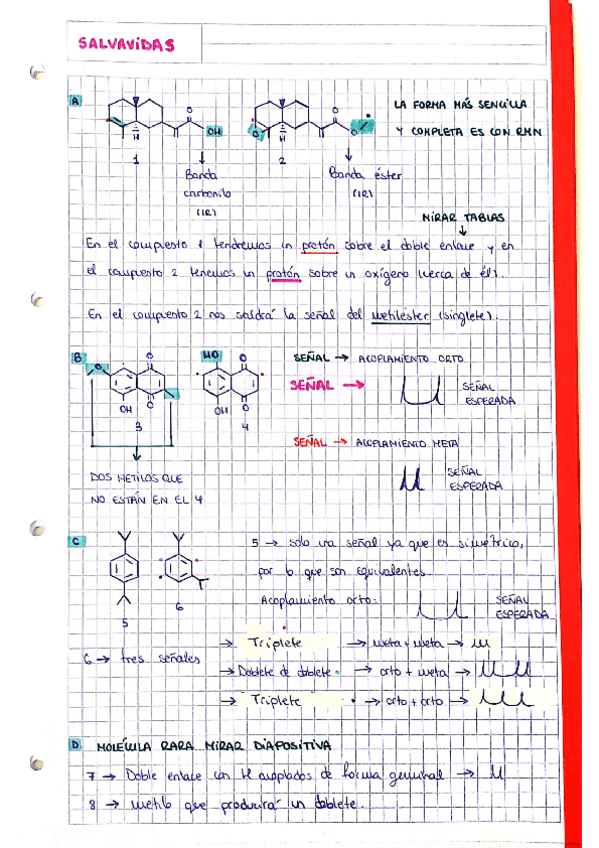 SALVAVIDAS
A
OH
O
H
1
O
O
O
H
2
LA FORMA MÁS SENCILLA
Y COMPLETA ES CON RMN
Banda
carbonilo
(IR)
Banda éster
(IR)
MIRAR TABLAS
En el compuesto 1 tendremos un protón sobre el doble enlace y en
el compuesto 2 tenemos un protón sobre un oxígeno (cerca de él).
En el compuesto 2 nos saldrá la señal del metiléster (singlete).
B
O
O
OH
O
3
HO
O
OH
O
4
SEÑAL → ACOPLAMIENTO ORTO
SEÑAL →
SEÑAL
ESPERADA
SEÑAL → ACOPLAMIENTO META
SEÑAL
ESPERADA
DOS METILOS QUE
NO ESTÁN EN EL 4
C
5
6
5 → solo una señal ya que es simétrico,
por lo que son equivalentes
Acoplamiento orto:
SEÑAL
ESPERADA
6 → tres señales
→ Triplete → meta + meta →
→ Doblete de doblete → orto + meta →
→ Triplete → orto + orto →
D MOLÉCULA RARA MIRAR DIAPOSITIVA
7 → Doble enlace con H acoplados de forma geminal →
8 → metilo que producirá un doblete.